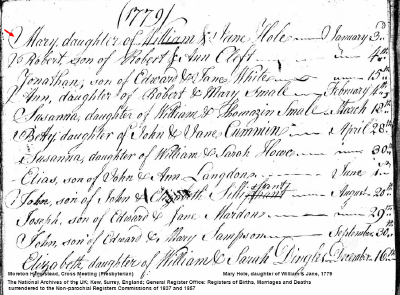 (1779)
Mary, daughter of William & Jane Hole January 3d
Robert, son of Robert & Ann Cleft 4th
Jonathan, son of Edward & Jane White 15th
Ann, daughter of Robert & Mary Smale February 4th
Susanna, daughter of William & Thomazin Smale March 18th
Betty, daughter of John & Jane Cummin April 28th
Susanna, daughter of William & Sarah Howe 30th
Elias, son of John & Ann Langdon June 1st
John, son of John & Elizabeth August 20th
Joseph, son of Edward & Jane Mardon 29th
John, son of Edward & Mary Sampson September 30th
Elizabeth, daughter of William & Sarah Dingle December 16th
Moreton Hampstead, Cross Meeting (Presbyterian) Mary Hole, daughter of William & Jane, 1779
The National Archives of the UK; Kew, Surrey, England; General Register Office: Registers of Births, Marriages and Deaths
surrendered to the Non-parochial Registers Commissions of 1837 and 1857